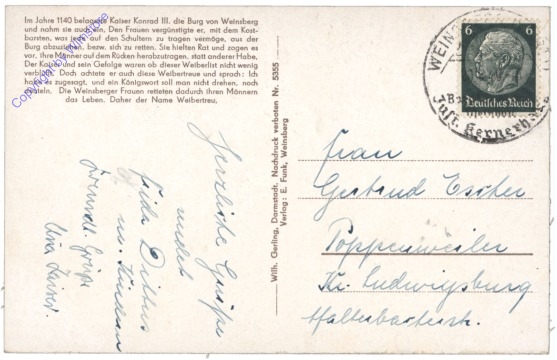 Im Jahre 1140 belagerte Kaiser Konrad III. die Burg von Weinsberg
und nahm sie auch ein. Den Frauen vergünstigte er, mit dem Kost-
barsten, was jede auf den Schultern zu tragen vermöge, aus der
Burg abzuziehen, bezw. sich zu retten. Sie hielten Rat und zogen es
vor, ihre Männer auf dem Rücken herabzutragen, statt anderer Habe.
Der Kaiser und sein Gefolge waren ob dieser Weiberlist nicht wenig
verblüfft. Doch achtete er auch diese Weibertreue und sprach: Ich
habe es zugesagt, und ein Königswort soll man nicht drehen, noch
deuteln. Die Weinsberger Frauen retteten dadurch ihren Männern
das Leben. Daher der Name Weibertreu.
Herzliche Grüße
Frida
Freundl. Grüße
Wilh. Gerling, Darmstadt. Nachdruck verboten Nr. 5355
Verlag: E. Funk, Weinsberg
WEINSBERG
6 6
Deutsches Reich
Just. Kernerhaus
Frau
Gertrud Escher
Poppenweiler
Kr. Ludwigsburg